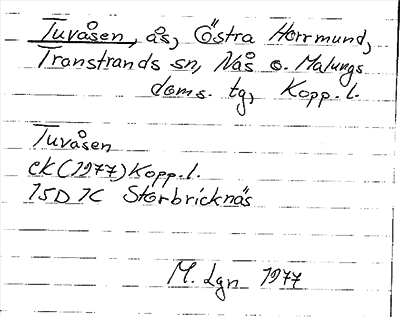 Tuvåsen, ås, Östra Horrmund,
Transtrands sn, Nås o. Malungs
doms. tg, Kopp. l.
Tuvåsen
EK (1977) Kopp. l.
15D 7C Storbricknäs
M. Lgn 1977